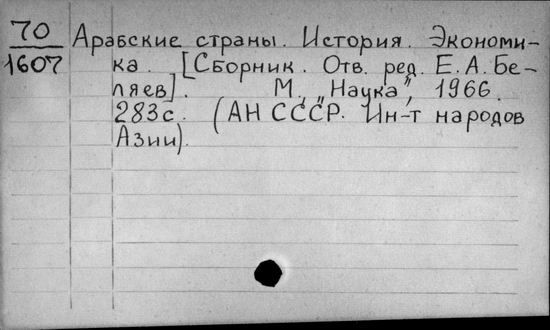 70
1607
Арабские страны. История. Экономи-
ка. [Сборник. Отв. ред. Е. А. Бе-
ляев]. М., „Наука", 1966.
283с. (АН СССР. Ин-т народов
Азии).